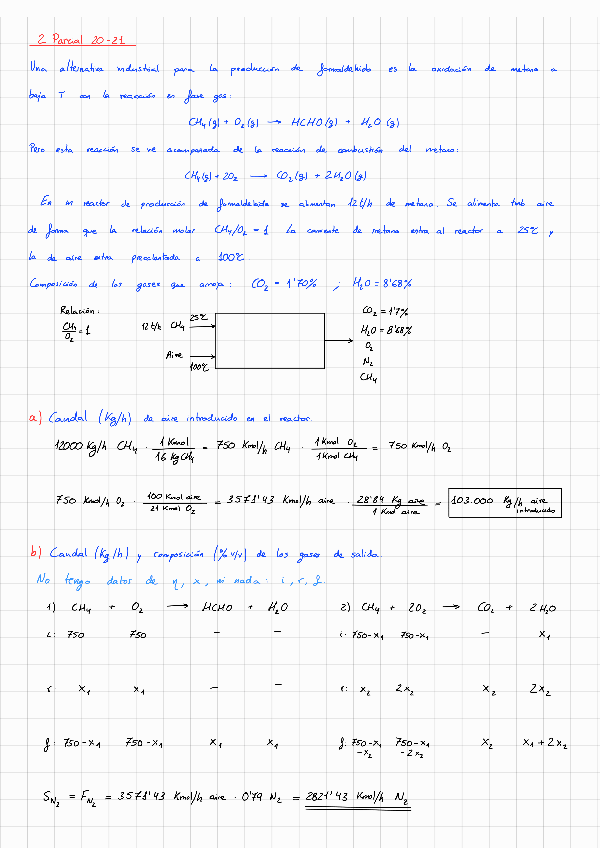 2 Parcial 20-21
Una alternativa industrial para la producción de formaldehído es la oxidación de metano a
baja T con la reacción en fase gas:
CH₄(g) + O₂(g) → HCHO(g) + H₂O(g)
Pero esta reacción se ve acompañada de la reacción de combustión del metano:
CH₄(g) + 2O₂ → CO₂(g) + 2H₂O(g)
En un reactor de producción de formaldehído se alimentan 12 t/h de metano. Se alimenta tmb aire
de forma que la relación molar CH₄/O₂ = 1 La corriente de metano entra al reactor a 25ºC y
la de aire entra precalentada a 100ºC
Composición de los gases que arroja: CO₂ = 1'70% ; H₂O = 8'68%
Relación:
CH₄/O₂ = 1
12 t/h CH₄ 25ºC
Aire 100ºC
CO₂ = 1'7%
H₂O = 8'68%
O₂
N₂
CH₄
a) Caudal (Kg/h) de aire introducido en el reactor.
12000 Kg/h CH₄ · 1 Kmol / 16 Kg CH₄ = 750 Kmol/h CH₄ · 1 Kmol O₂ / 1 Kmol CH₄ = 750 Kmol/h O₂
750 Kmol/h O₂ · 100 Kmol aire / 21 Kmol O₂ = 3571'43 Kmol/h aire · 28'84 Kg aire / 1 Kmol aire = 103.000 Kg/h aire introducido
b) Caudal (Kg/h) y composición (% v/v) de los gases de salida.
No tengo datos de η, x, ni nada: i, r, f.
1) CH₄ + O₂ → HCHO + H₂O 2) CH₄ + 2O₂ → CO₂ + 2H₂O
i: 750 750 – – i: 750-x₁ 750-x₁ – x₁
r: x₁ x₁ – – r: x₂ 2x₂ x₂ 2x₂
f: 750-x₁ 750-x₁ x₁ x₁ f: 750-x₁-x₂ 750-x₁-2x₂ x₂ x₁+2x₂
S_N₂ = F_N₂ = 3571'43 Kmol/h aire · 0'79 N₂ = 2821'43 Kmol/h N₂